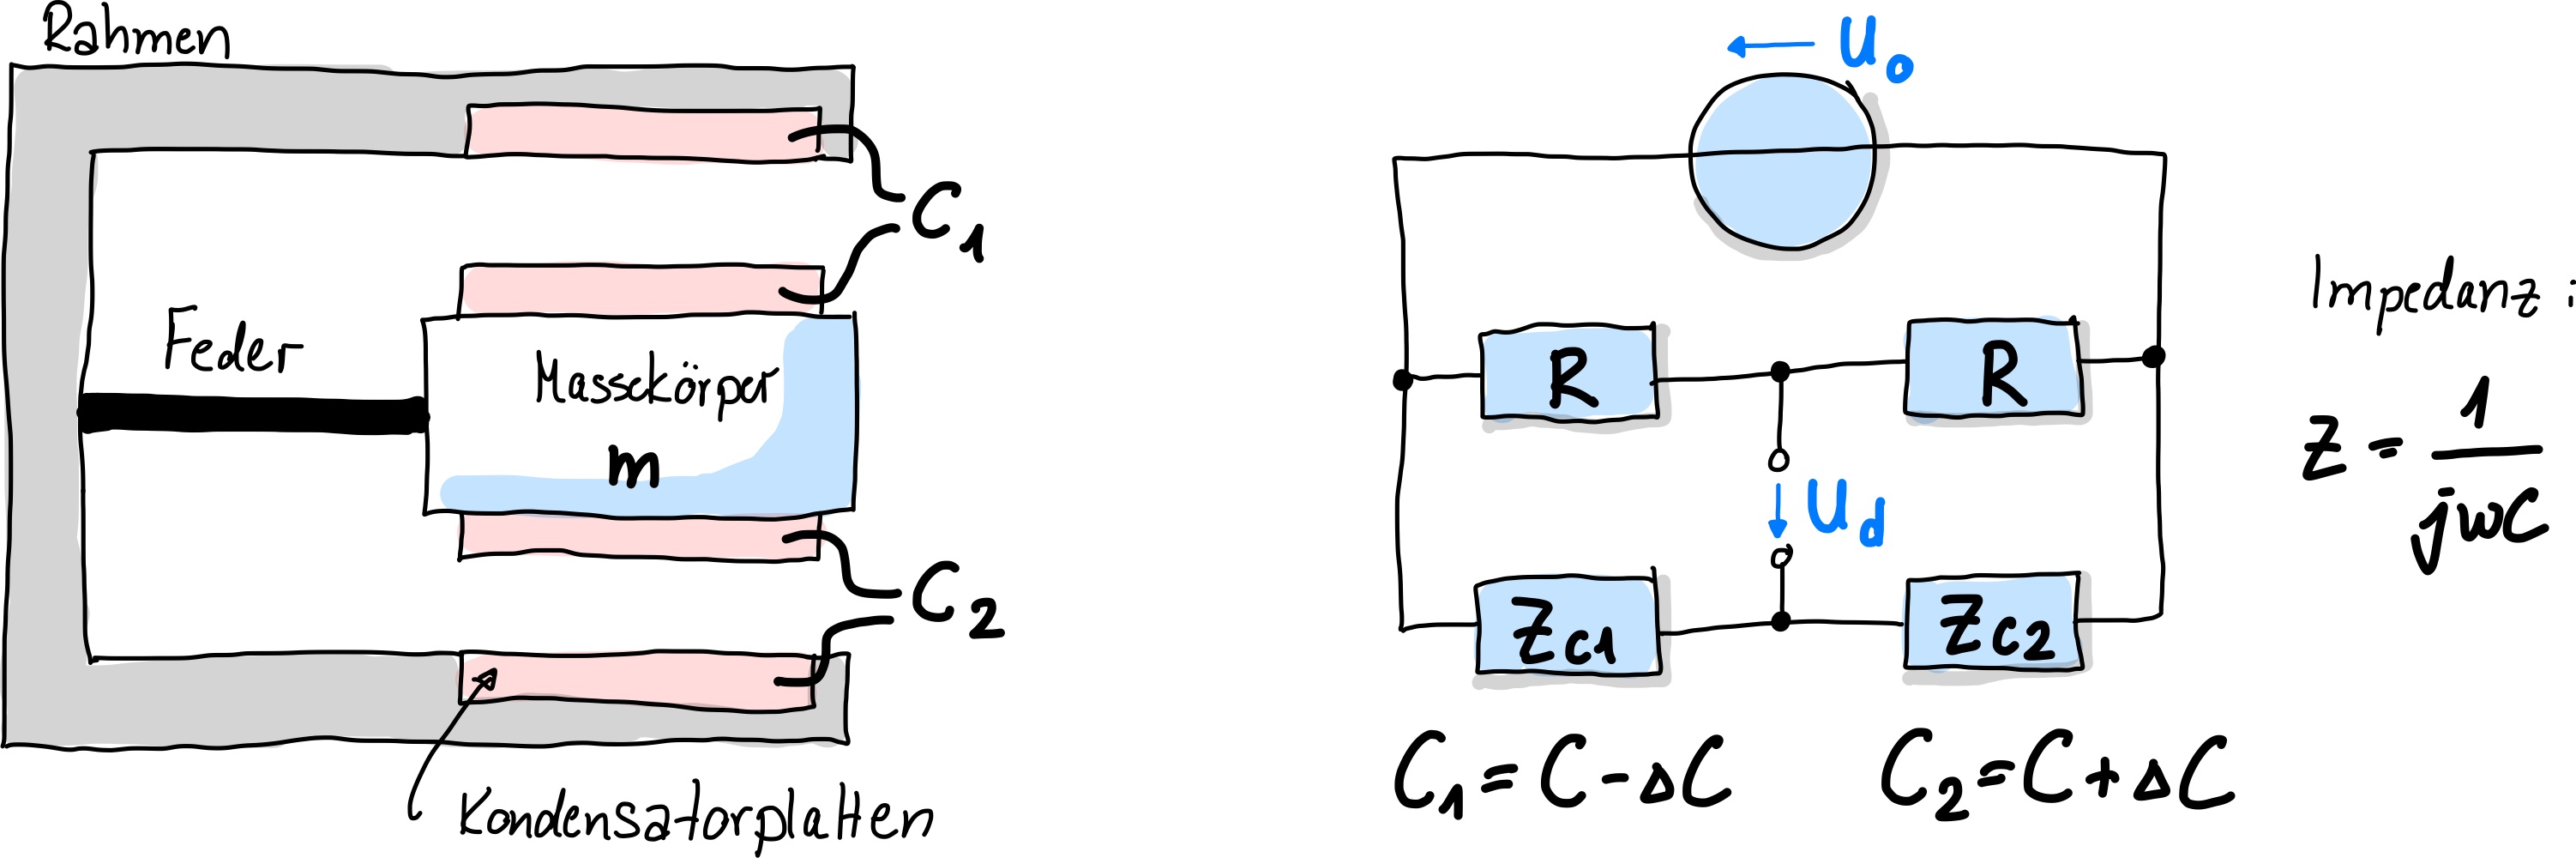 Rahmen
C1
Feder
Massekörper
m
C2
Kondensatorplatten
U0
R
R
Ud
ZC1
ZC2
C1 = C - ΔC
C2 = C + ΔC
Impedanz:
Z = 1/jwC